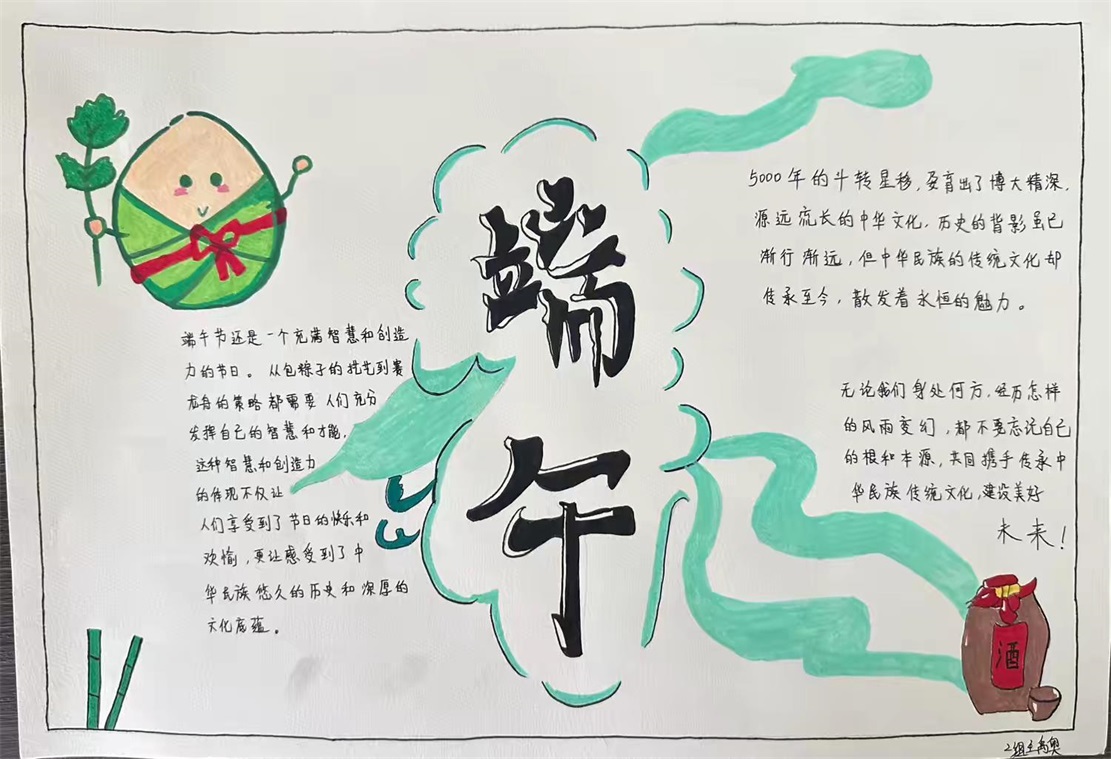 端午
端午节还是一个充满智慧和创造
力的节日。从包粽子的技艺到赛
龙舟的策略都需要人们充分
发挥自己的智慧和才能,
这种智慧和创造力
的体现不仅让
人们享受到了节日的快乐和
欢愉,更让感受到了中
华民族悠久的历史和深厚的
文化底蕴。
5000年的斗转星移,孕育出了博大精深,
源远流长的中华文化,历史的背影虽已
渐行渐远,但中华民族的传统文化却
传承至今,散发着永恒的魅力。
无论我们身处何方,经历怎样
的风雨变幻,都不要忘记自己
的根和本源,共同携手传承中
华民族传统文化,建设美好
未来!
酒
2组